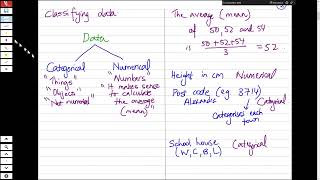 Classifying data
Data
Categorical
"Things"
"Objects"
"Not numerical"
Numerical
"Numbers"
"It makes sense
to calculate
the average
(mean)"
The average (mean)
of 50, 52 and 54
is 50+52+54
3
= 52
Height in cm Numerical
Post code (eg. 3714)
Alexandra
Categorical
Categorises each
town
School house Categorical
(W, C, B, L)